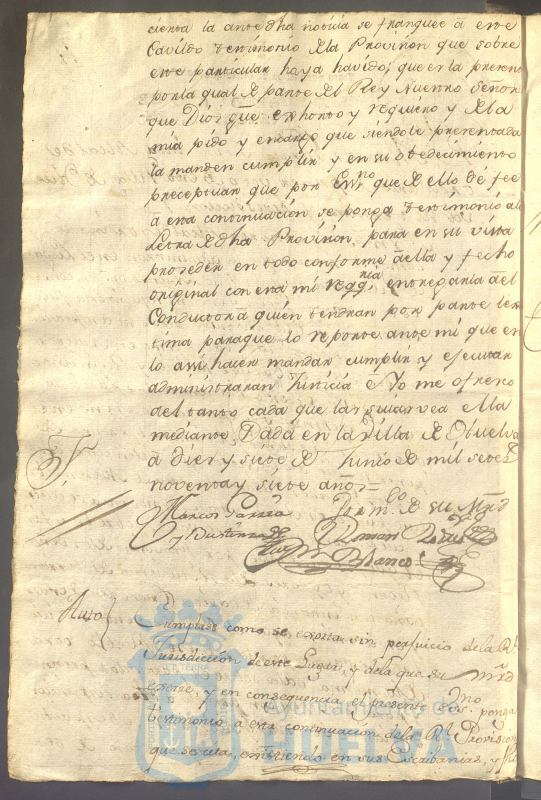 cienta la ante dha noticia se franquee â este
Cavildo testimonio de la Provision que sobre
este particular haya havido; que es la presente
por la qual de parte del Rey Nuestro Señor
que Dios gue. exhorto y requiero y de la
mia pido y encargo que siendole presentada
la manden cumplir y en su obedecimiento
preceptuar que por Essno que de ello de fee
a esta continuacion se ponga testimonio a la
Letra de dha Provision para en su vista
proceder en todo conforme a ella y fecho
original con esta mi reqqria, entregarla al
Conductor a quien tendran por parte lex
tima para que lo reporte ante mi que en
lo assi hacer mandar cumplir y ejecutar
administraran Justicia e Yo me ofresco
al tanto cada que las suias vea ella
mediante Dada en la Villa de Huelva
a diez y siete de Junio de mil setez
noventa y siete años =
Marcos Garzia
y Bustamte
Por mdo. de su Mrd
Blanco
Auto
Cumplase como se exorta sin perjuicio de la Rl.
Jurisdiccion de este Lugar, y de la que su Mrd
exerse, y en consequencia el presente Essno ponga
testimonio a esta continuacion de la Rl. Provision
que se cita, existiendo en sus Escribanias, y
Ayuntamiento de
HUELVA